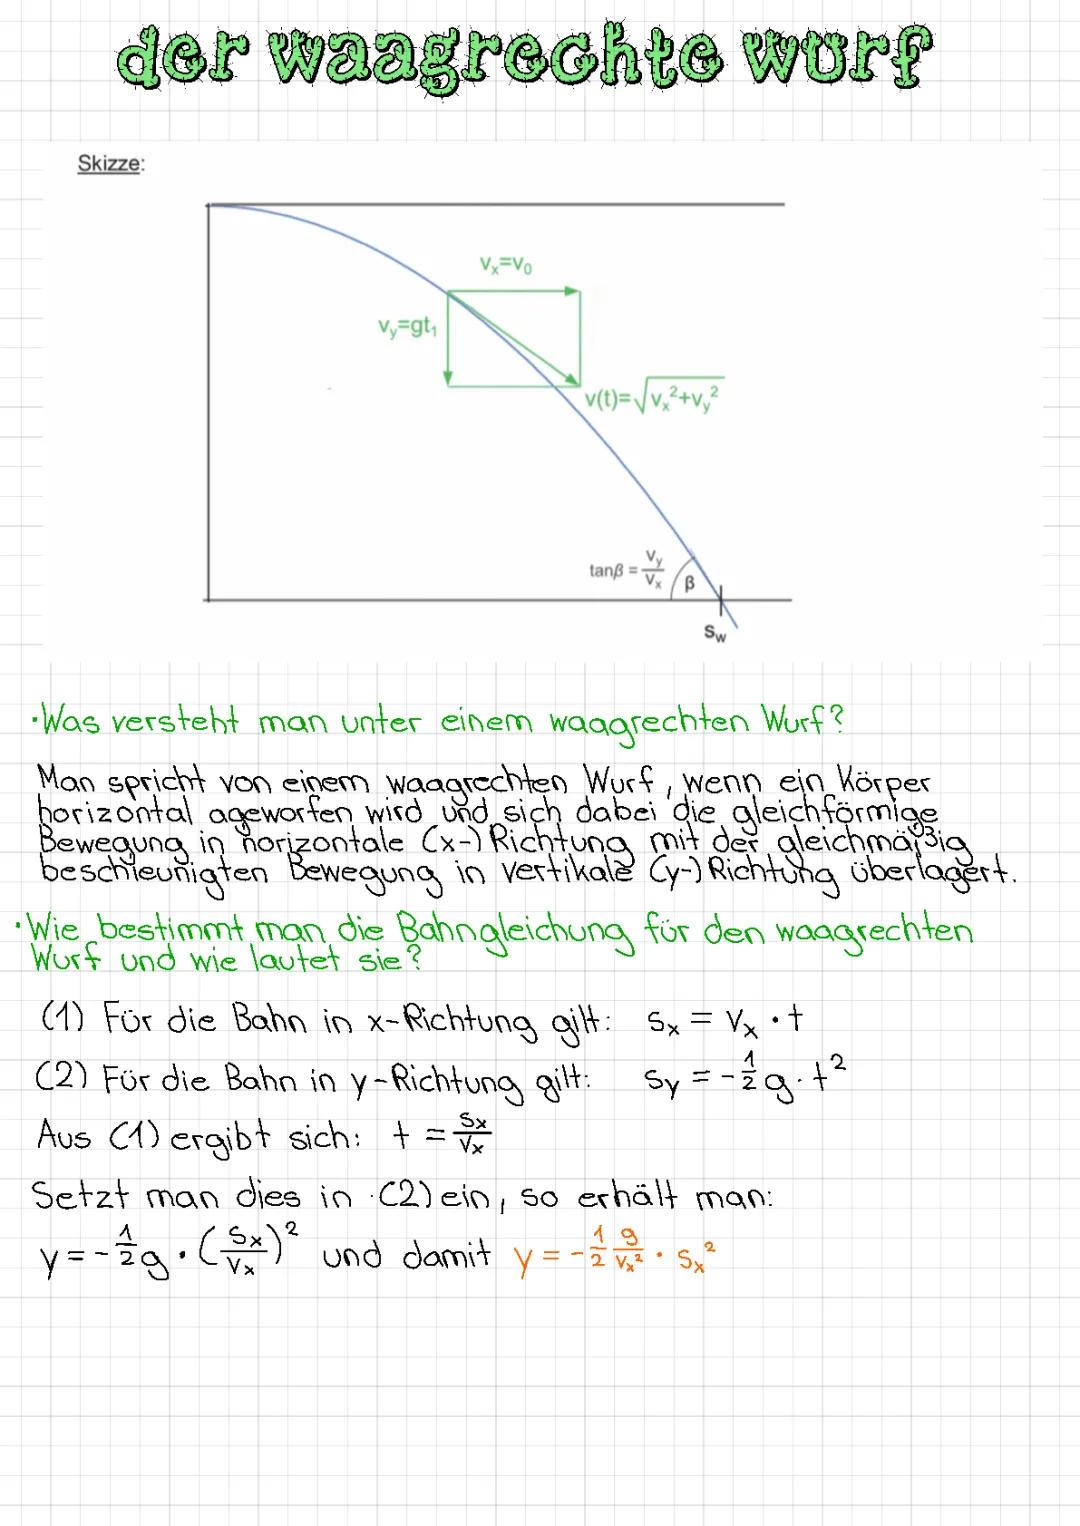 der waagrechte wurf
Skizze:
vₓ=v₀
v_y=gt₁
v(t)=√(vₓ²+v_y²)
tanβ = v_y/vₓ
β
s_w
•Was versteht man unter einem waagrechten Wurf?
Man spricht von einem waagrechten Wurf, wenn ein Körper
horizontal ageworfen wird und sich dabei die gleichförmige
Bewegung in horizontale (x-) Richtung mit der gleichmäßig
beschleunigten Bewegung in vertikale (y-) Richtung überlagert.
•Wie bestimmt man die Bahngleichung für den waagrechten
Wurf und wie lautet sie?
(1) Für die Bahn in x-Richtung gilt: Sₓ = Vₓ · t
(2) Für die Bahn in y-Richtung gilt: S_y = -1/2 g · t²
Aus (1) ergibt sich: t = Sₓ/Vₓ
Setzt man dies in (2) ein, so erhält man:
y = -1/2 g · (Sₓ/Vₓ)² und damit y = -1/2 g/Vₓ² · Sₓ²